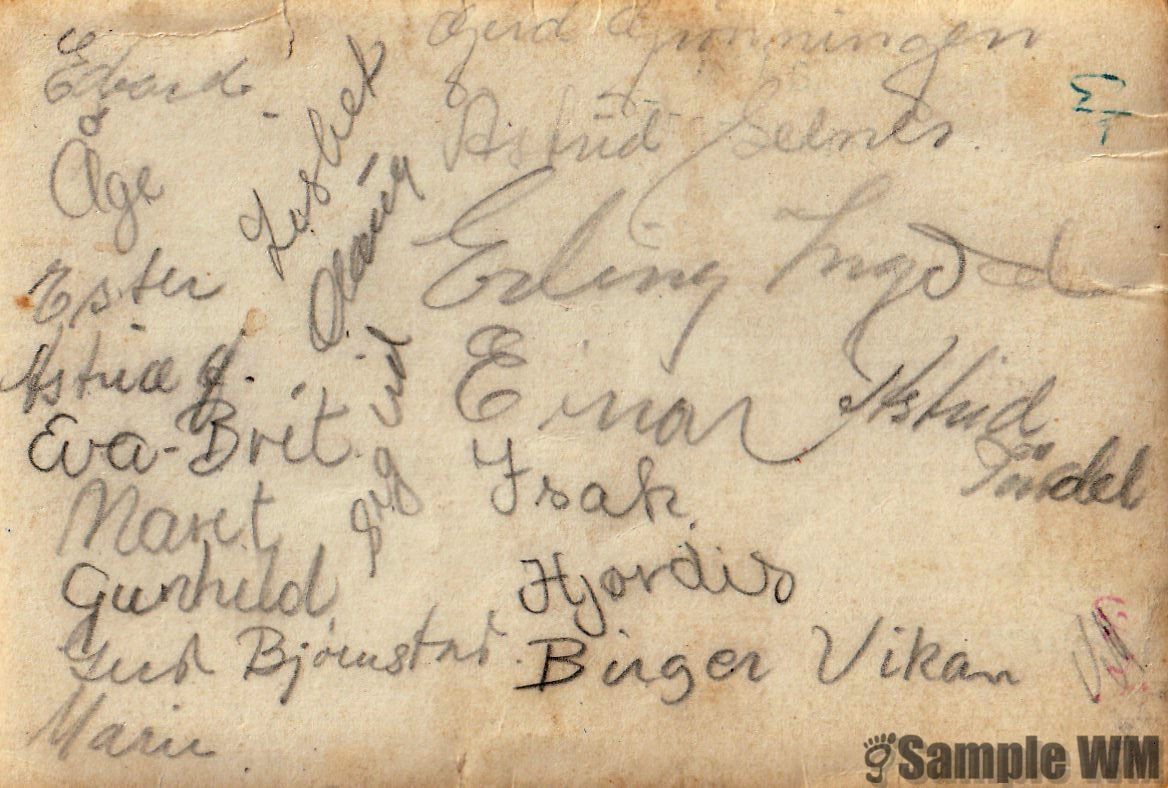 Edvard
Åge
Ester
Astrid G.
Eva-Brit
Maret
Gunhild
Gurd Bjørnstad
Marie
Lisbet
Olaug
Sigrid
Gjerd Grønningen
Astrid Selnes.
Erling Ingold
Einar
Astrid
Isak
Hjørdis
Birger Vikan
Sample WM